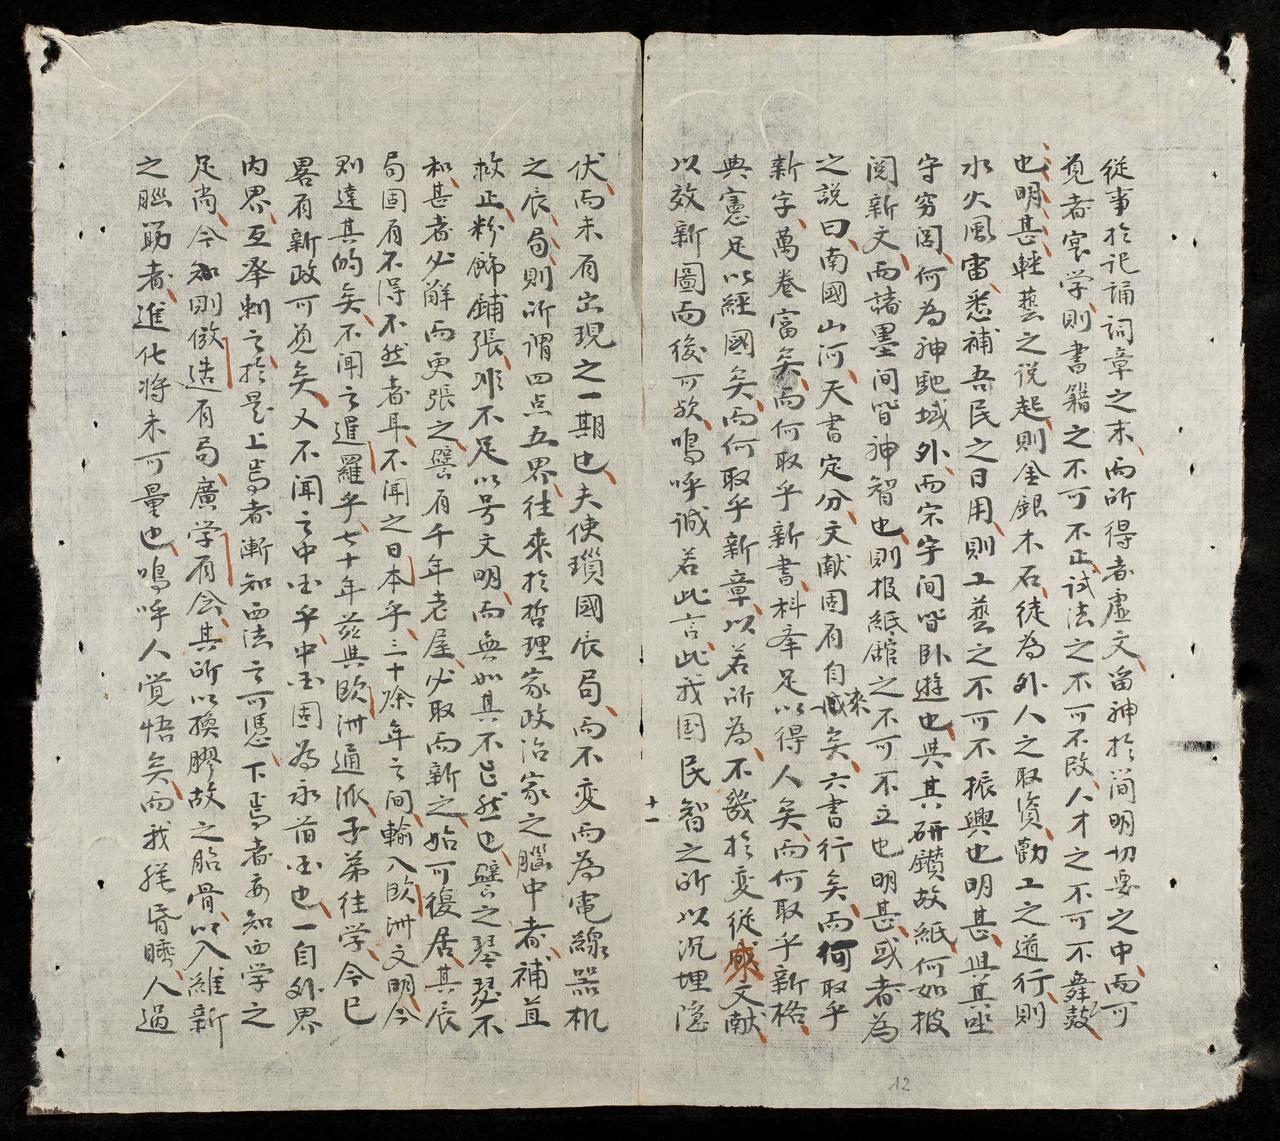 從事於記誦詞章之末而所得者虛文畱神於簡明切要之中而可
覓者宲学則書籍之不可不正試法之不可不改人才之不可不舞鼓
也明甚軽藝之说起則金銀木石徒為外人之取資勸工之道行則
水火風雷悉補吾民之日用則工藝之不可不振興也明甚與其坐
守穷閭何為神馳域外而宗宇间皆卧遊也與其研鑽故紙何如披
閲新文而諸墨间皆神智也則报紙舘之不可不立也明甚或者為
之說曰南國山河天書定分文献固有自来矣六書行矣而何取乎
新字萬卷富矣而何取乎新書科峯足以得人矣而何取乎新格
典憲足以經國矣而何取乎新章以若所為不幾於変従文献
以效新圖而後可欤鳴呼誠若此言此我国民智之所以沉埋隐
十一
伏而未有出現之一期也夫使瑣國辰局而不変而為電線器机
之辰局則所謂四点五界往來於哲理家政治家之腦中者補苴
救止粉餙鋪張雖不足以号文明而無如其不已然也譬之琴瑟不
和甚者必解而更張之譬有千年老屋必取而新之始可復居其辰
局固有不得不然者耳不聞之日本乎三十馀年之间輸入欧洲文明今
則達其的矣不闻之暹羅乎七十年茲與欧洲通派子弟往学今已
畧有新政可覓矣又不闻之中国乎中国固為永前国也一自外界
内界互牽刺之於是上焉者漸知西法之可憑下焉者亦知西学之
足尚今知則倣造有局廣学有会其所以換膠故之胎骨以入維新
之腦筋者進化将未可量也鳴呼人觉悟矣而我獨昏睡人過
12